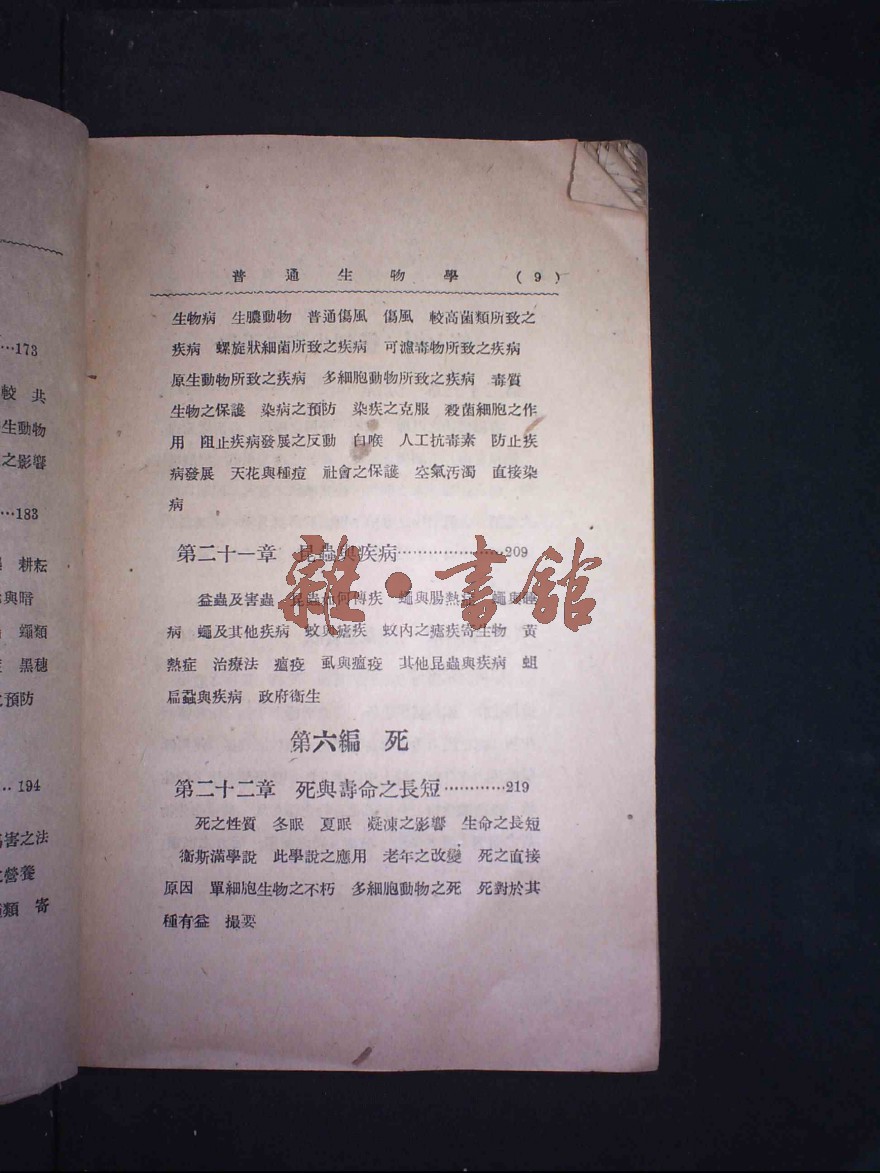 …173
較 共
生動物
之影響
…183
耕耘
與暗
蠅類
黑穗
預防
… 194
害之法
營養
類 寄
普通生物學 (9)
生物病 生膿動物 普通傷風 傷風 較高菌類所致之
疾病 螺旋狀細菌所致之疾病 可濾毒物所致之疾病
原生動物所致之疾病 多細胞動物所致之疾病 毒質
生物之保護 染病之預防 染疾之克服 殺菌細胞之作
用 阻止疾病發展之反動 白喉 人工抗毒素 防止疾
病發展 天花與種痘 社會之保護 空氣汚濁 直接染
病
第二十一章 昆蟲與疾病…………………209
益蟲及害蟲 昆蟲如何傳疾 蠅與腸熱症 蠅與睡
病 蠅及其他疾病 蚊與瘧疾 蚊內之瘧疾寄生物 黃
熱症 治療法 瘟疫 虱與瘟疫 其他昆蟲與疾病 蛆
扁蝨與疾病 政府衞生
第六編 死
第二十二章 死與壽命之長短…………219
死之性質 冬眠 夏眠 凝凍之影響 生命之長短
衞斯滿學說 此學說之應用 老年之改變 死之直接
原因 單細胞生物之不朽 多細胞動物之死 死對於其
種有益 撮要
雜·書館